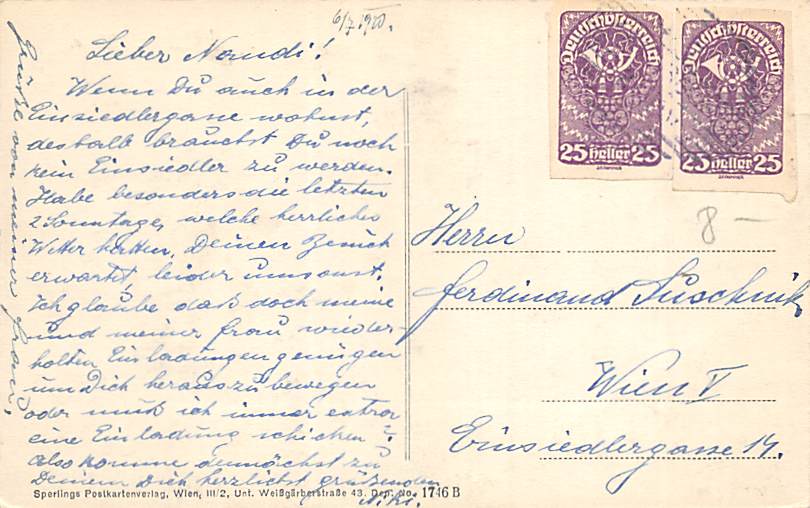 6/7 1920.
Lieber Nandi!
Wenn Du auch in der
Einsiedlergasse wohnst,
deshalb brauchst Du noch
kein Einsiedler zu werden.
Habe besonders die letzten
2 Sonntage, welche herrliches
Wetter hatten, Deinen Besuch
erwartet, leider umsonst.
Ich glaube daß doch meine
und meiner Frau wieder-
holten Einladungen genügen
um Dich herauszubewegen
oder muß ich immer extra
eine Einladung schicken?
also komme demnächst zu
Deinem Dich herzlichst grüßenden
Grüße von meiner Frau.
Sperlings Postkartenverlag, Wien, III/2, Unt. Weißgärberstraße 43. Dep. No. 1746 B
Deutschösterreich
25 Heller 25
Deutschösterreich
25 Heller 25
8 —
Herrn
Ferdinand Suschnik
Wien V
Einsiedlergasse 14.